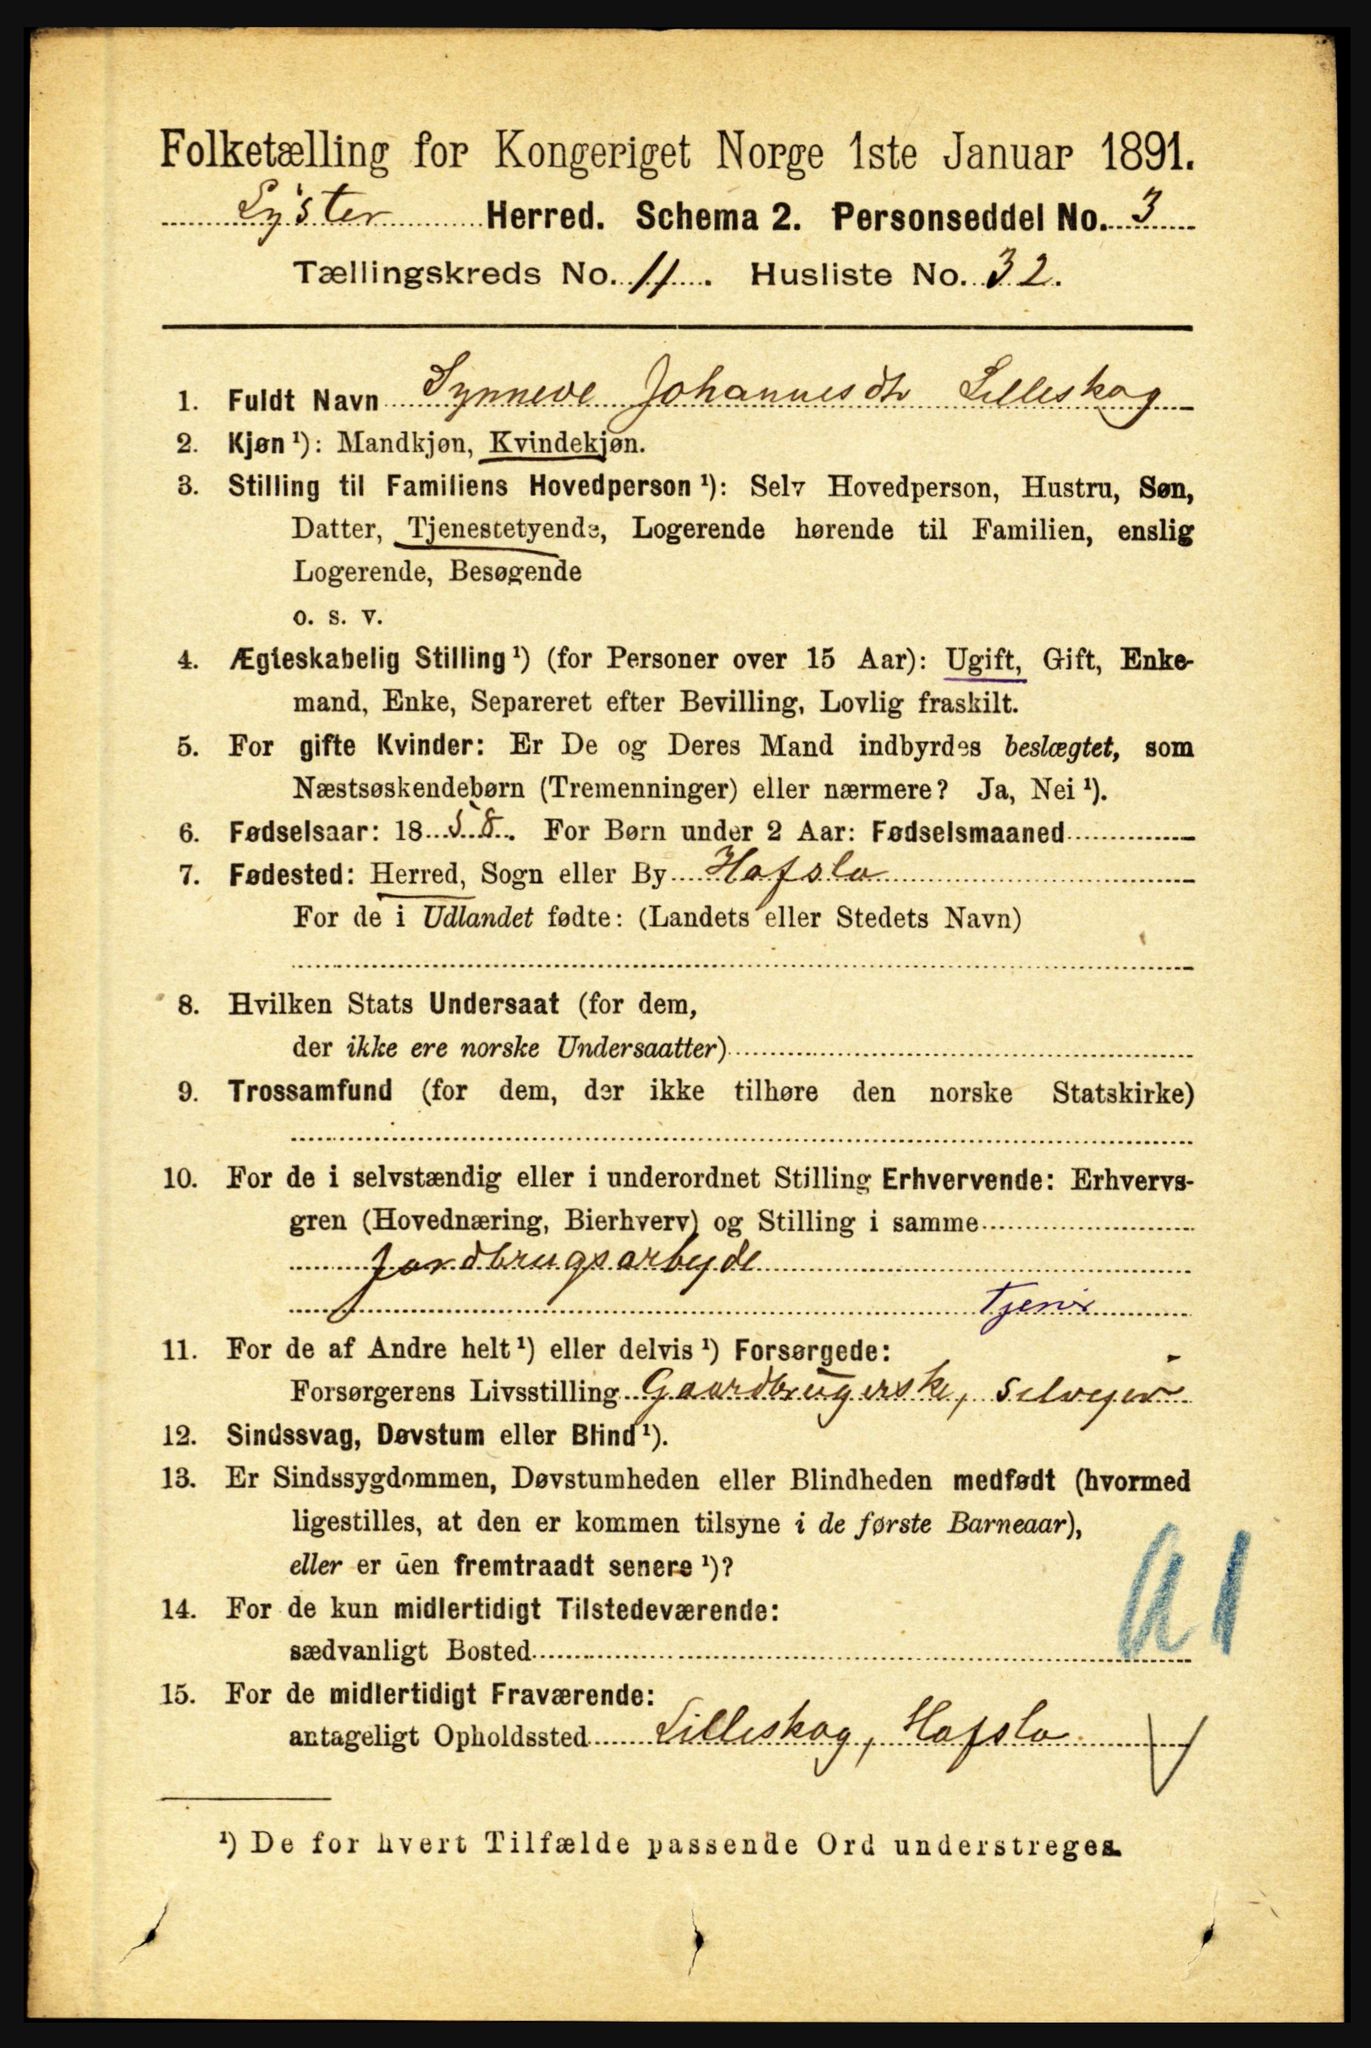 Folketælling for Kongeriget Norge 1ste Januar 1891.
Lyster Herred. Schema 2. Personseddel No. 3
Tællingskreds No. 11. Husliste No. 32.
1. Fuldt Navn Synneve Johannesdtr Lilleskog
2. Kjøn ¹): Mandkjøn, Kvindekjøn.
3. Stilling til Familiens Hovedperson ¹): Selv Hovedperson, Hustru, Søn,
Datter, Tjenestetyende, Logerende hørende til Familien, enslig
Logerende, Besøgende
o. s. v.
4. Ægteskabelig Stilling ¹) (for Personer over 15 Aar): Ugift, Gift, Enke-
mand, Enke, Separeret efter Bevilling, Lovlig fraskilt.
5. For gifte Kvinder: Er De og Deres Mand indbyrdes beslægtet, som
Næstsøskendebørn (Tremenninger) eller nærmere? Ja, Nei ¹).
6. Fødselsaar: 1858. For Børn under 2 Aar: Fødselsmaaned
7. Fødested: Herred, Sogn eller By Hafslo
For de i Udlandet fødte: (Landets eller Stedets Navn)
8. Hvilken Stats Undersaat (for dem,
der ikke ere norske Undersaatter)
9. Trossamfund (for dem, der ikke tilhøre den norske Statskirke)
10. For de i selvstændig eller i underordnet Stilling Erhvervende: Erhvervs-
gren (Hovednæring, Bierhverv) og Stilling i samme
Jordbrugsarbejde
Tjener
11. For de af Andre helt ¹) eller delvis ¹) Forsørgede:
Forsørgerens Livsstilling Gaardbrugerske, Selvejer
12. Sindssvag, Døvstum eller Blind ¹).
13. Er Sindssygdommen, Døvstumheden eller Blindheden medfødt (hvormed
ligestilles, at den er kommen tilsyne i de første Barneaar),
eller er den fremtraadt senere ¹)?
14. For de kun midlertidigt Tilstedeværende:
sædvanligt Bosted
15. For de midlertidigt Fraværende:
antageligt Opholdssted Lilleskog, Hafslo
¹) De for hvert Tilfælde passende Ord understreges.